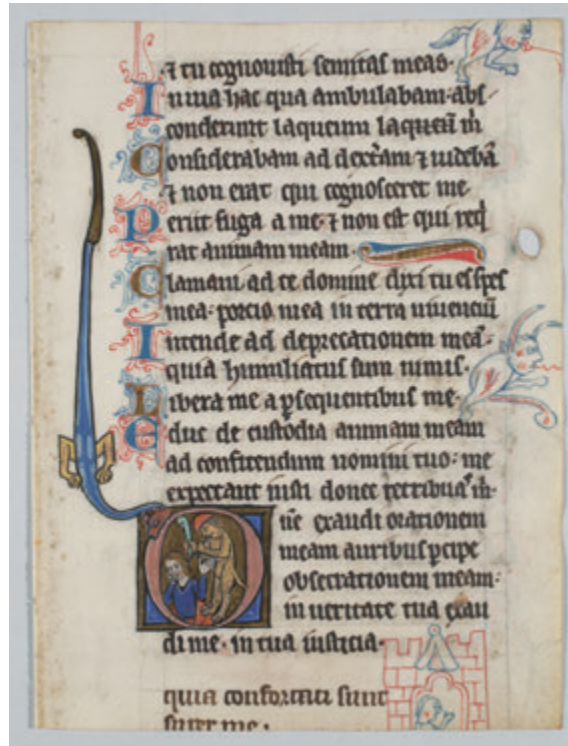 ⁊ tu cognouisti semitas meas.
In uia hac qua ambulabam. abs
conderunt laqueum laqueū m̄
Considerabam ad dext̄am ⁊ uidebā
⁊ non erat qui cognosceret me.
Periit fuga a me. ⁊ non est qui req̄
rat animam meam.
Clamaui ad te domine dixi tu es spes
mea. porcio mea in terra uiuenciū
Intende ad deprecationem meā.
quia humiliatus sum nimis.
Libera me a ꝑsequentibus me.
Educ de custodia animam meam
ad confitendum nomini tuo: me
expectant iusti donec retribuaſ m̄.
Dn̄e exaudi orationem
meam auribus ꝑcipe
obsecrationem meam:
in ueritate tua exau
di me. in tua iusticia.
quia confortati sunt
super me.